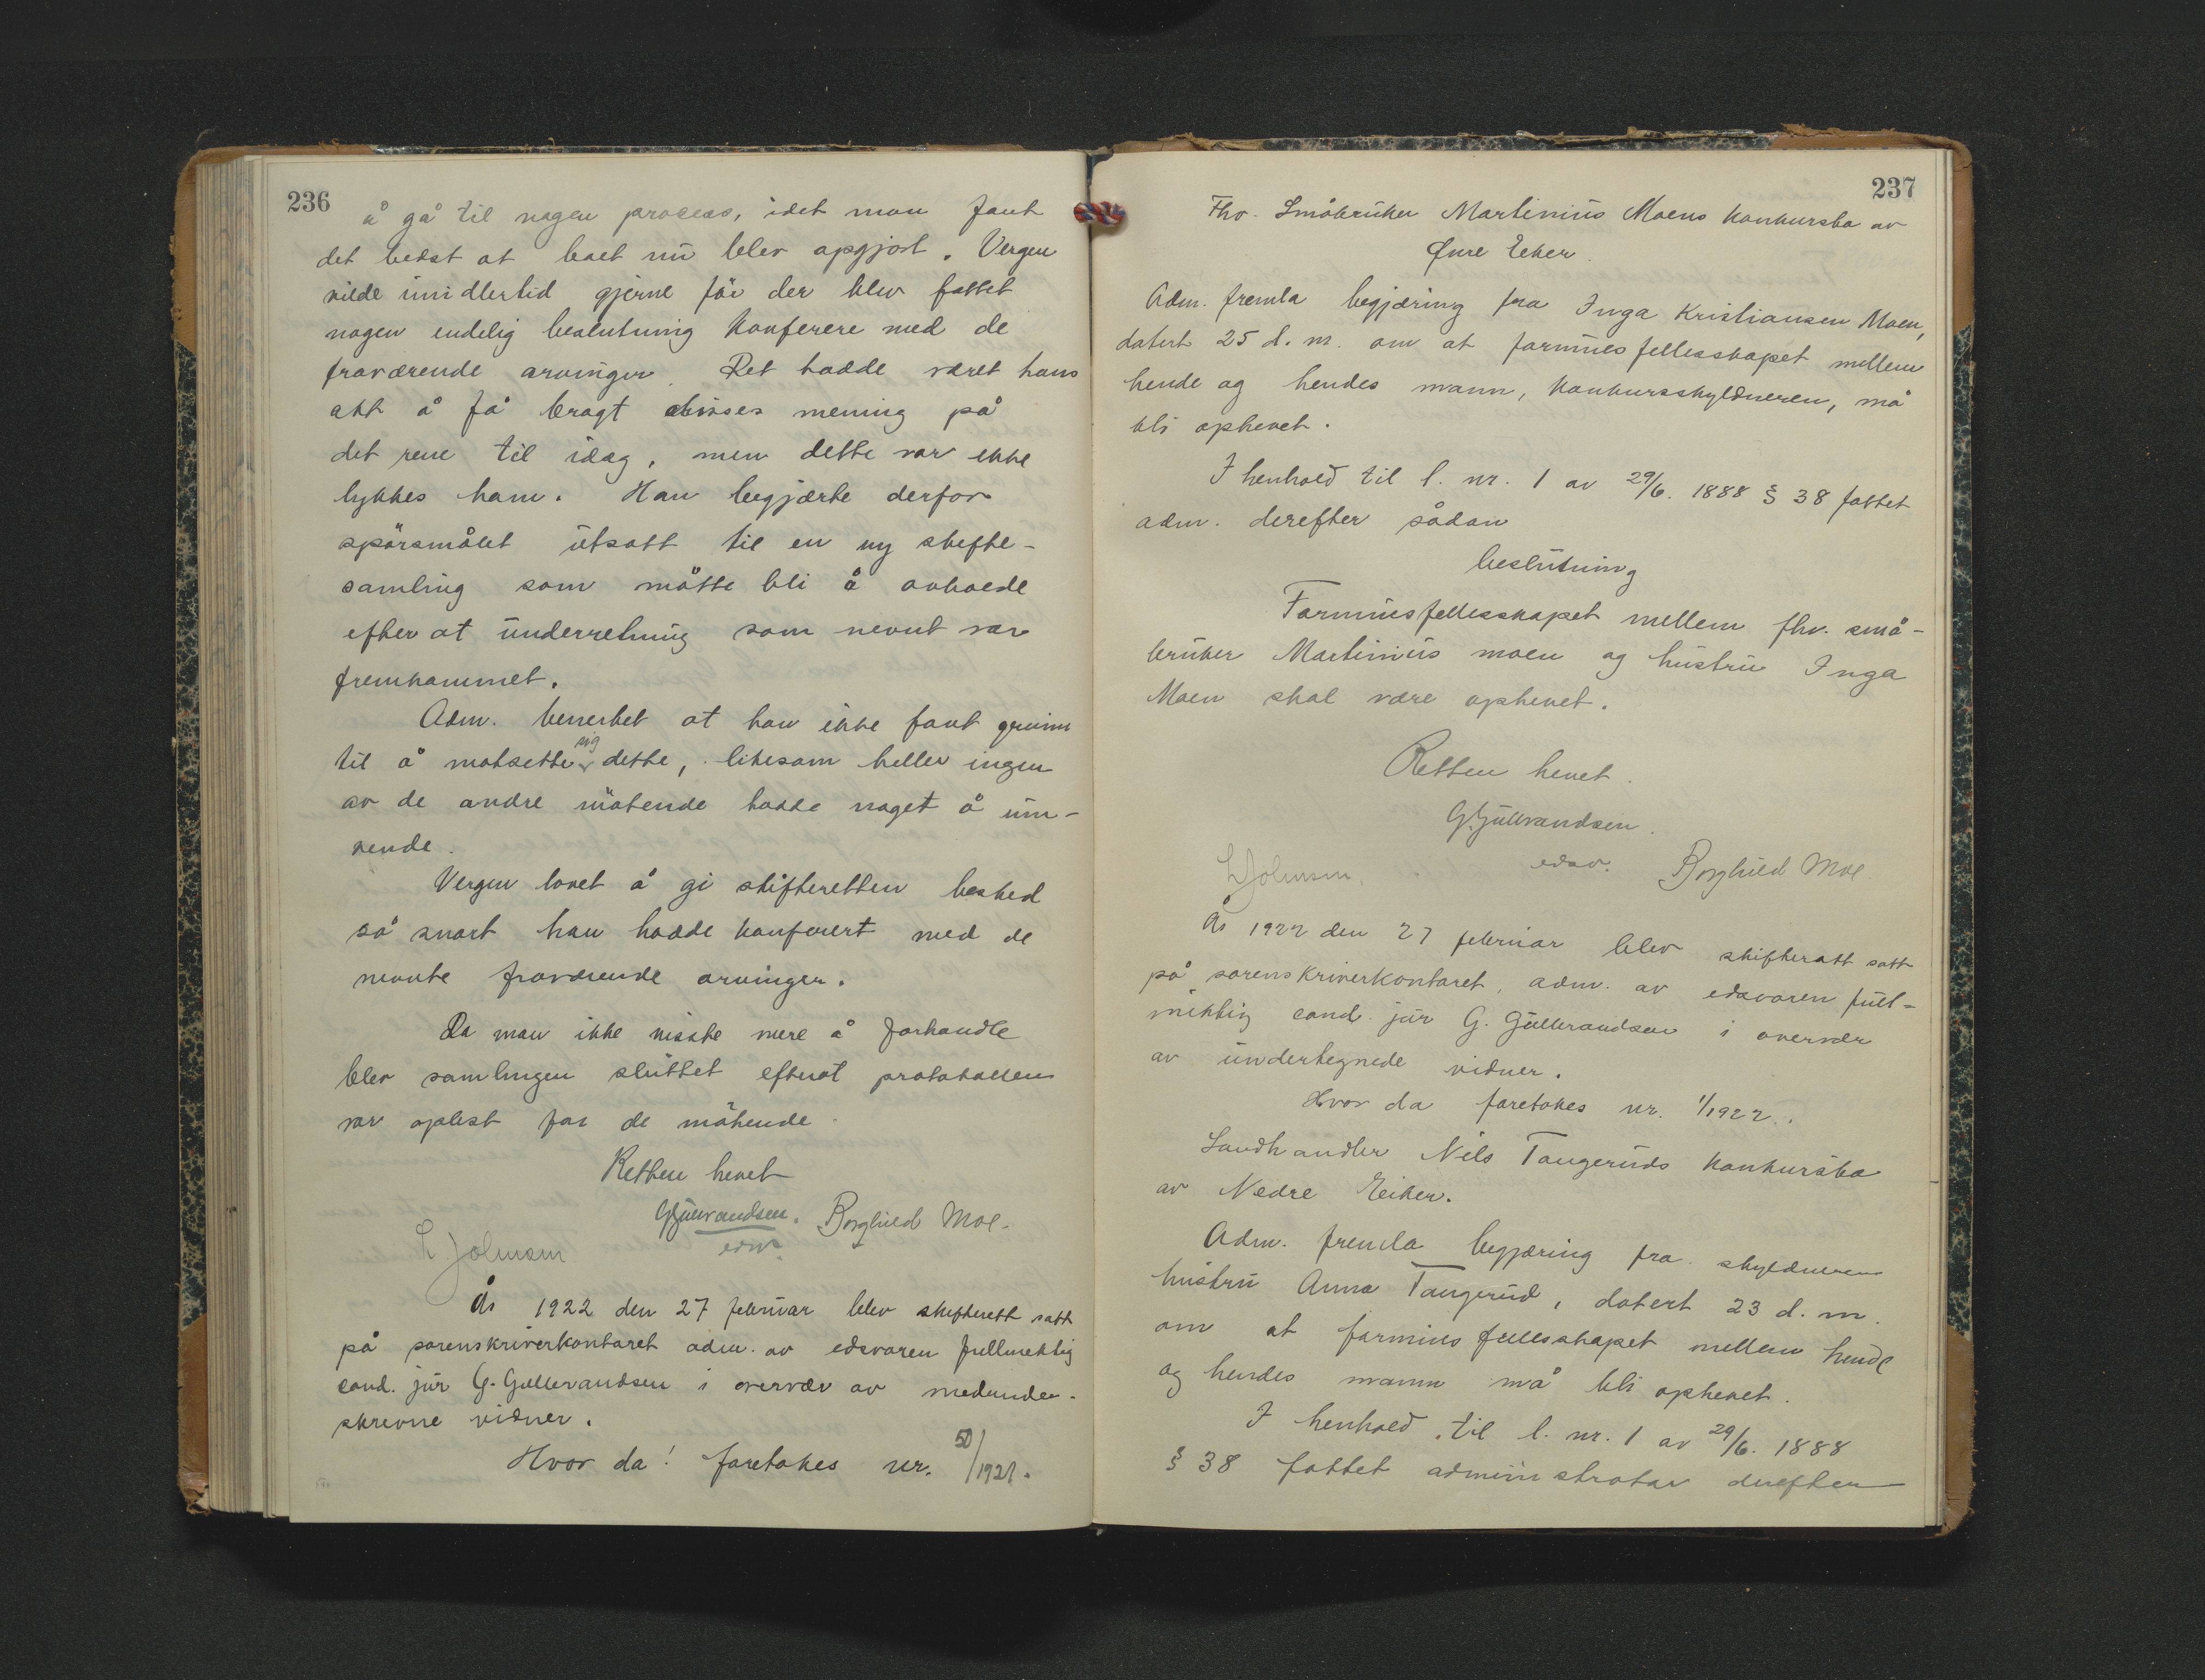 236
å gå til nogen process, idet man fant
det bedst at boet nu blev opgjort. Vergen
vilde imidlertid gjerne før der blev fattet
nogen endelig beslutning konferere med de
fraværende arvinger. Det hadde været hans
akt å få bragt disses mening på
det rene til idag, men dette var ikke
lykkes ham. Han begjærte derfor
spörsmålet utsatt til en ny skifte-
samling som måtte bli å avholde
efter at underretning som nevnt var
fremkommet.
Adm. bemerket at han ikke fant grunn
til å motsette sig dette, likesom heller ingen
av de andre mötende hadde noget å inn-
vende.
Vergen lovet å gi skifteretten beskjed
så snart han hadde konferert med de
nevnte fraværende arvinger.
Da man ikke visste mere å forhandle
blev samlingen sluttet efterat protokollen
var oplest for de mötende.
Retten hevet
G Gullvrandsen. Borghild Moe.
edsv.
L. Johnsen.
År 1922 den 27 februar blev skifterett satt
på sorenskriverkontoret adm. av edsvoren fullmektig
cand. jur G. Gullvrandsen i overvær av medunder-
skrevne vidner.
Hvor da! foretokes nr. 50/1921.
237
Fhv. Småbruker Martinius Moens konkursbo av
Øvre Eeker.
Adm. fremla begjæring fra Inga Kristiansen Moen,
datert 25 d. m. om at formuesfellesskapet mellem
hende og hendes mann, konkursskyldneren, må
bli ophevet.
I henhold til l. nr. 1 av 29/6. 1888 § 38 fattet
adm. derefter sådan
beslutning
Formuesfellesskapet mellem fhv. små-
bruker Martinius moen og hustru Inga
Moen skal være ophevet.
Retten hevet.
G. Gullvrandsen.
edsv. Borghild Moe.
L Johnsen.
År 1922 den 27 februar blev skifterett satt
på sorenskriverkontoret, adm. av edsvoren full-
mektig cand. jur G. Gullvrandsen i overvær
av undertegnede vidner.
Hvor da foretokes nr. 1/1922.
Landhandler Nils Tangeruds konkursbo
av Nedre Eiker.
Adm. fremla begjæring fra skyldnerens
hustru Anna Tangerud, datert 23 d. m.
om at formuesfellesskapet mellem hende
og hendes mann må bli ophevet.
I henhold til l. nr. 1 av 29/6. 1888
§ 38 fattet administrator derefter